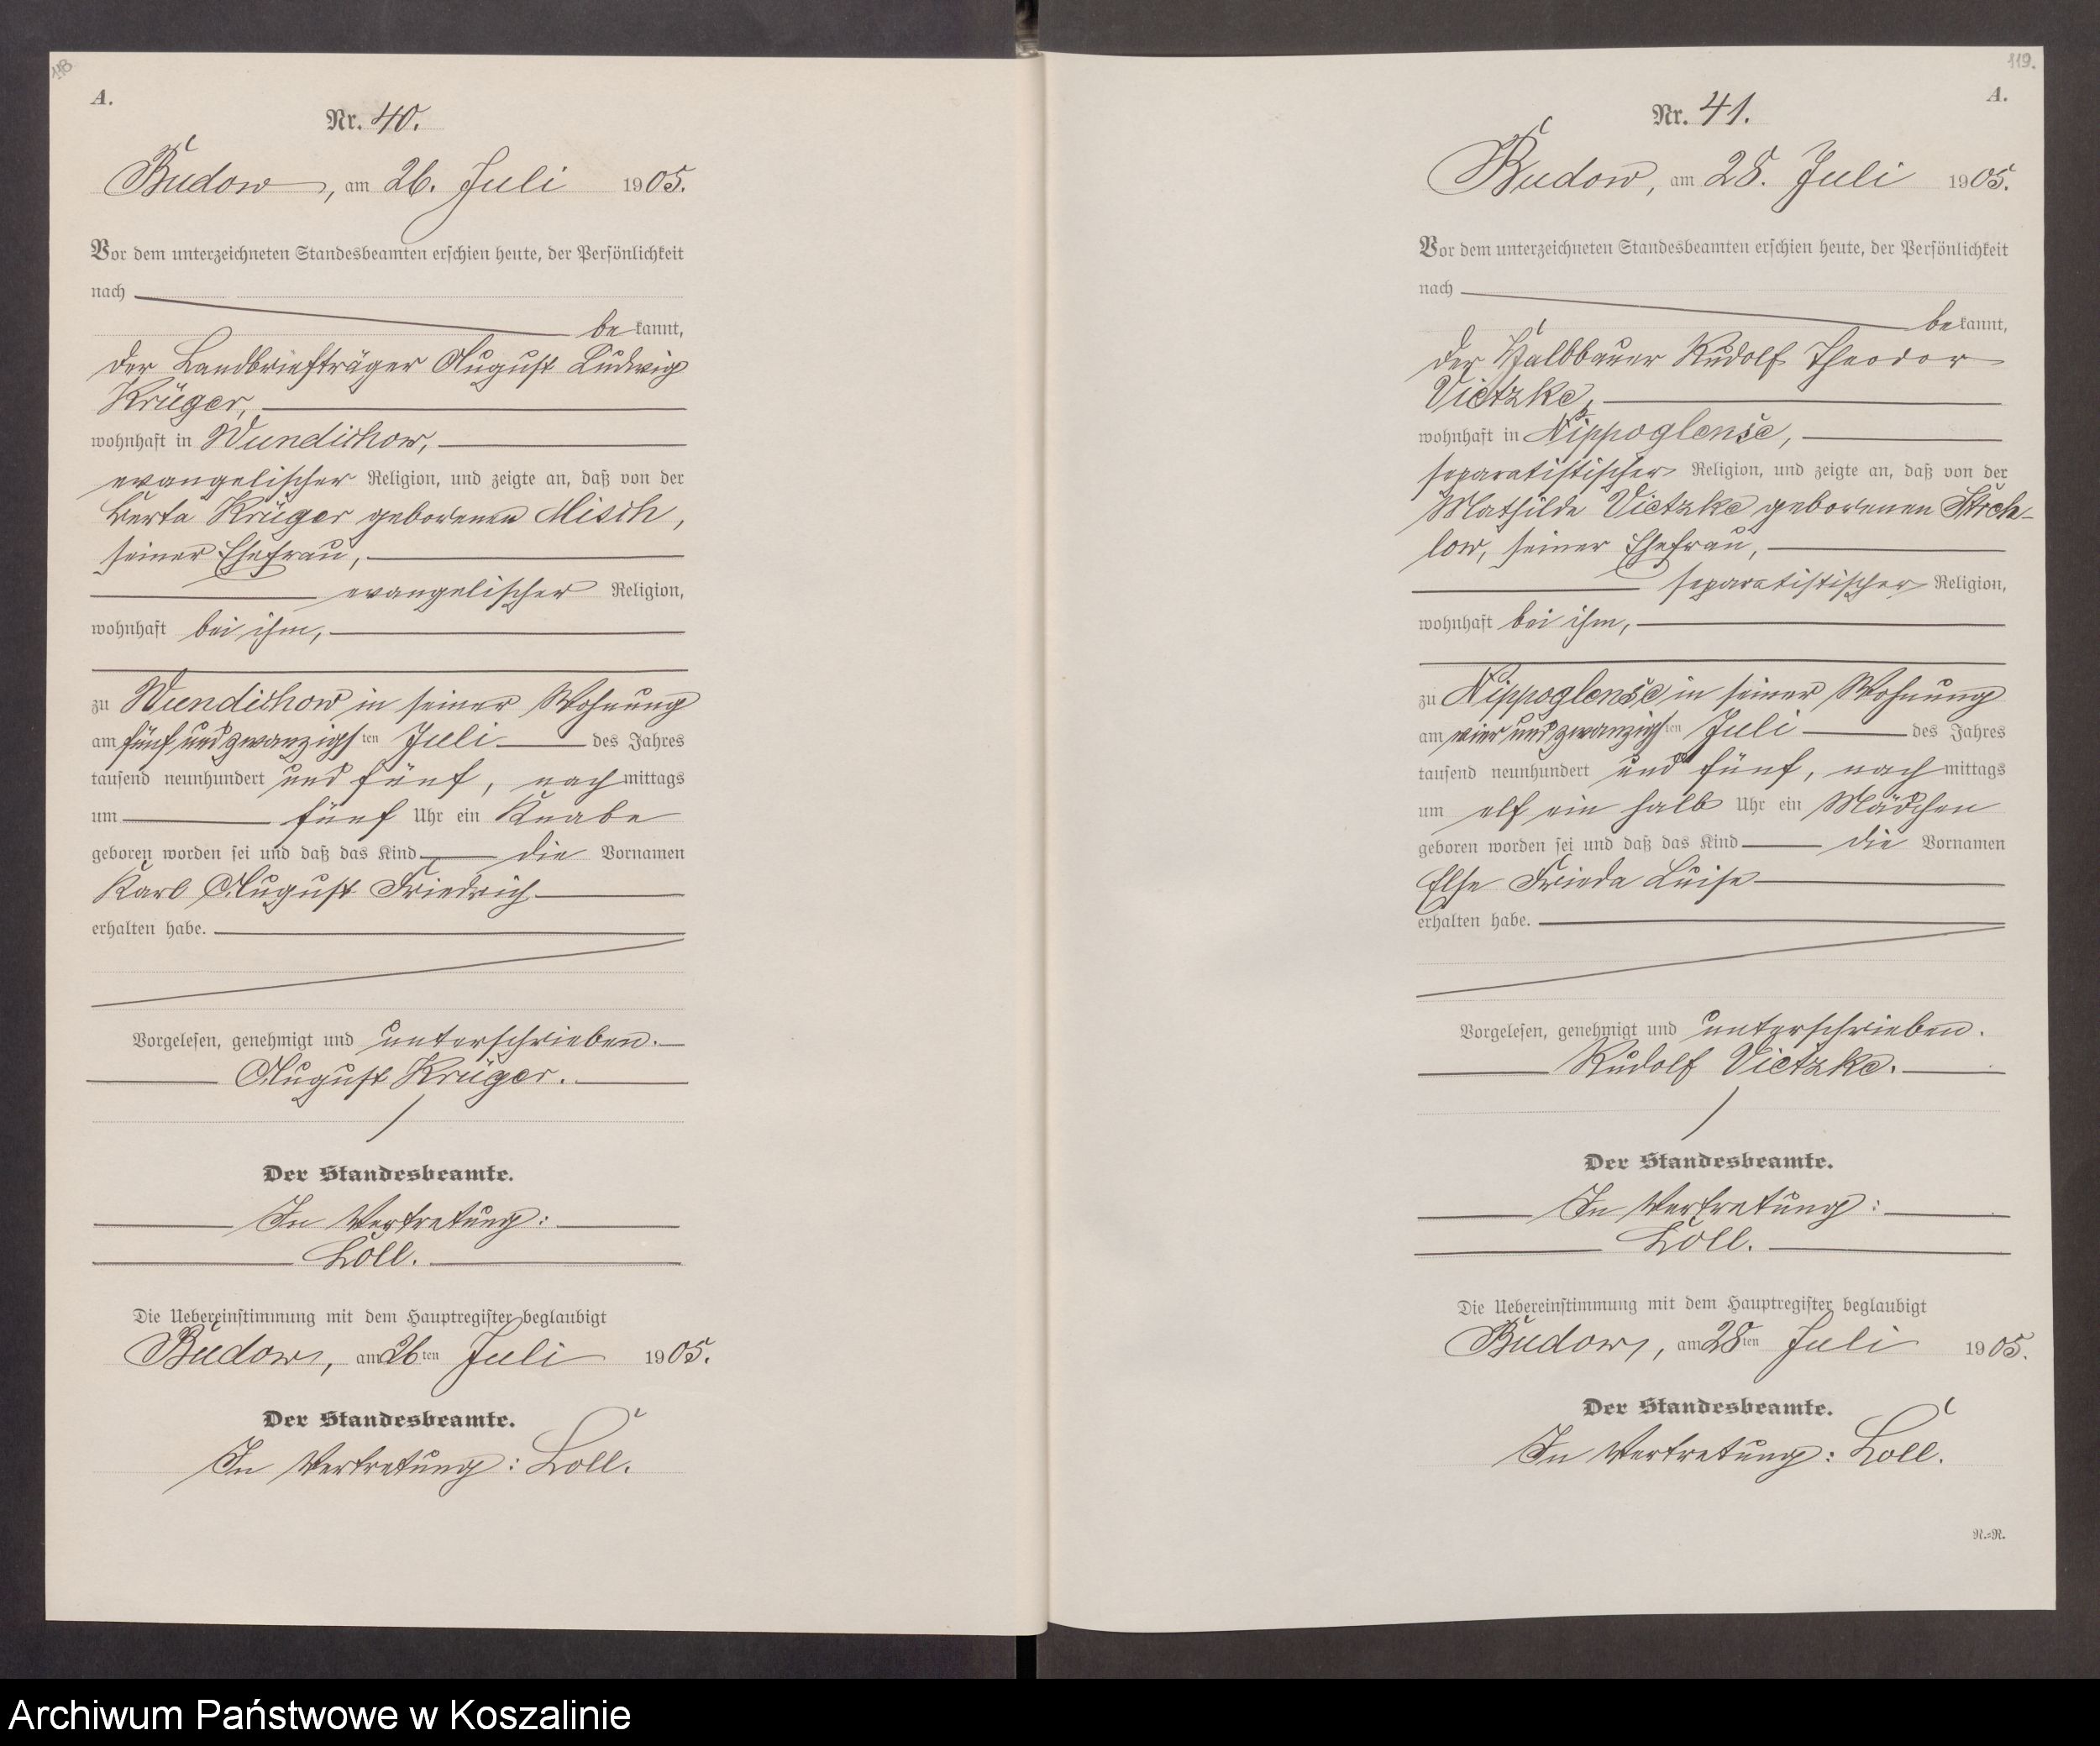 118
A.
Nr. 40.
Budow, am 26. Juli 1905.
Vor dem unterzeichneten Standesbeamten erschien heute, der Persönlichkeit
nach
bekannt,
der Landbriefträger August Ludwig
Krüger,
wohnhaft in Wundichow,
evangelischer Religion, und zeigte an, daß von der
Berta Krüger geborenen Misch,
seiner Ehefrau,
evangelischer Religion,
wohnhaft bei ihm,
zu Wundichow in seiner Wohnung
am fünf und zwanzigsten Juli des Jahres
tausend neunhundert und fünf, nachmittags
um fünf Uhr ein Knabe
geboren worden sei und daß das Kind die Vornamen
Karl August Friedrich
erhalten habe.
Vorgelesen, genehmigt und unterschrieben.
August Krüger.
Der Standesbeamte.
In Vertretung:
Loll.
Die Uebereinstimmung mit dem Hauptregister beglaubigt
Budow, am 26ten Juli 1905.
Der Standesbeamte.
In Vertretung: Loll.
119.
A.
Nr. 41.
Budow, am 28. Juli 1905.
Vor dem unterzeichneten Standesbeamten erschien heute, der Persönlichkeit
nach
bekannt,
der Halbbauer Rudolf Theodor
Vietzke,
wohnhaft in Nippoglense,
separatistischer Religion, und zeigte an, daß von der
Mathilde Vietzke geborenen
low, seiner Ehefrau,
separatistischer Religion,
wohnhaft bei ihm,
zu Nippoglense in seiner Wohnung
am vier und zwanzigsten Juli des Jahres
tausend neunhundert und fünf, nachmittags
um elf ein halb Uhr ein Mädchen
geboren worden sei und daß das Kind die Vornamen
Else Frieda Luise
erhalten habe.
Vorgelesen, genehmigt und unterschrieben.
Rudolf Vietzke.
Der Standesbeamte.
In Vertretung:
Loll.
Die Uebereinstimmung mit dem Hauptregister beglaubigt
Budow, am 28ten Juli 1905.
Der Standesbeamte.
In Vertretung: Loll.
N.=N.
Archiwum Państwowe w Koszalinie